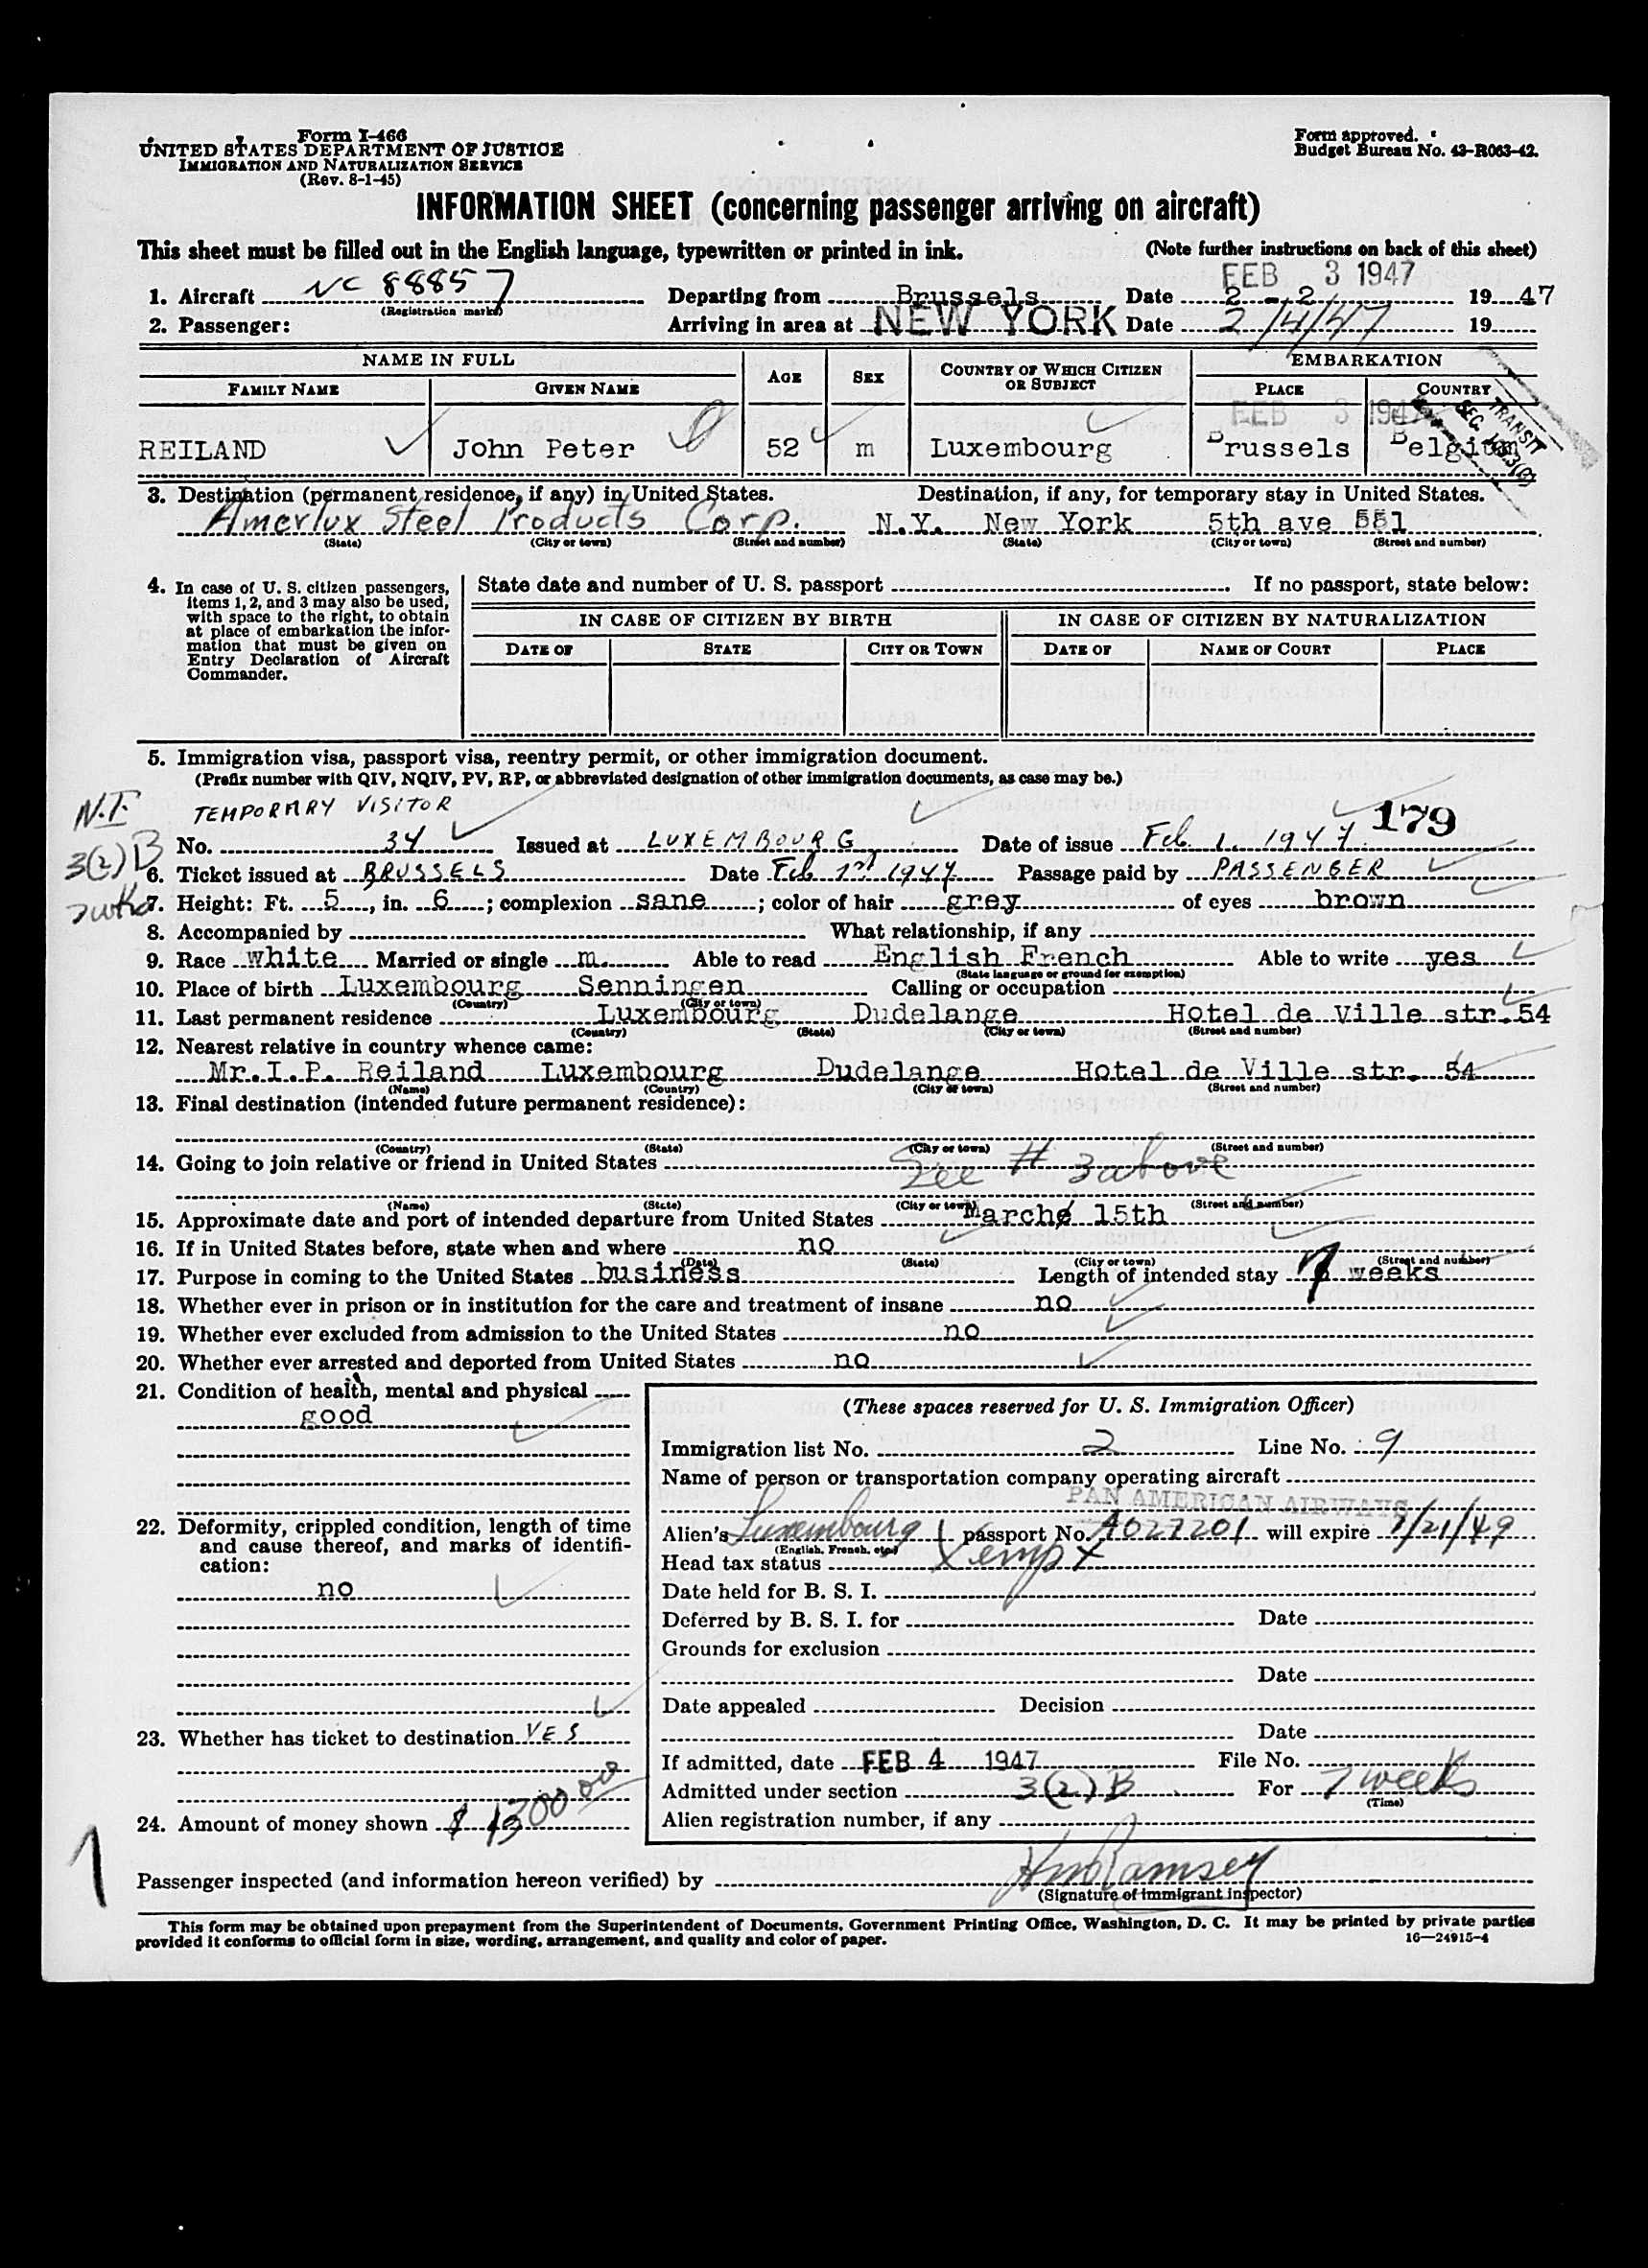 Form I-466
UNITED STATES DEPARTMENT OF JUSTICE
IMMIGRATION AND NATURALIZATION SERVICE
(Rev. 8-1-45)
Form approved.
Budget Bureau No. 43-R063-42.
INFORMATION SHEET (concerning passenger arriving on aircraft)
This sheet must be filled out in the English language, typewritten or printed in ink. (Note further instructions on back of this sheet)
FEB 3 1947
1. Aircraft NC 88857 Departing from Brussels Date 2 - 2 1947
(Registration marks)
2. Passenger: Arriving in area at NEW YORK Date 2/4/47 19
NAME IN FULL AGE SEX COUNTRY OF WHICH CITIZEN OR SUBJECT EMBARKATION
FAMILY NAME GIVEN NAME PLACE COUNTRY
FEB 3 1947
TRANSIT
REILAND John Peter 52 m Luxembourg Brussels Belgium
3. Destination (permanent residence, if any) in United States. Destination, if any, for temporary stay in United States.
Amerlux Steel Products Corp. N.Y. New York 5th ave 551
(State) (City or town) (Street and number) (State) (City or town) (Street and number)
4. In case of U. S. citizen passengers, items 1, 2, and 3 may also be used, with space to the right, to obtain at place of embarkation the information that must be given on Entry Declaration of Aircraft Commander.
State date and number of U. S. passport If no passport, state below:
IN CASE OF CITIZEN BY BIRTH IN CASE OF CITIZEN BY NATURALIZATION
DATE OF STATE CITY OR TOWN DATE OF NAME OF COURT PLACE
5. Immigration visa, passport visa, reentry permit, or other immigration document.
(Prefix number with QIV, NQIV, PV, RP, or abbreviated designation of other immigration documents, as case may be.)
N.I.
TEMPORARY VISITOR 179
3(2)B
No. 34 Issued at LUXEMBOURG Date of issue Feb. 1. 1947
6. Ticket issued at BRUSSELS Date Feb 1st 1947 Passage paid by PASSENGER
7 wks
7. Height: Ft. 5, in. 6; complexion sane; color of hair grey of eyes brown
8. Accompanied by What relationship, if any
9. Race white Married or single m. Able to read English French Able to write yes
(State language or ground for exemption)
10. Place of birth Luxembourg Senningen Calling or occupation
(Country) (City or town)
11. Last permanent residence Luxembourg Dudelange Hotel de Ville str. 54
(Country) (State) (City or town) (Street and number)
12. Nearest relative in country whence came:
Mr. I.P. Reiland Luxembourg Dudelange Hotel de Ville str. 54
(Name) (Country) (City or town) (Street and number)
13. Final destination (intended future permanent residence):
(Country) (State) (City or town) (Street and number)
14. Going to join relative or friend in United States See # 3 above
(Name) (State) (City or town) (Street and number)
15. Approximate date and port of intended departure from United States March 15th
16. If in United States before, state when and where no
(Date) (State) (City or town) (Street and number)
17. Purpose in coming to the United States business Length of intended stay 7 weeks
18. Whether ever in prison or in institution for the care and treatment of insane no
19. Whether ever excluded from admission to the United States no
20. Whether ever arrested and deported from United States no
21. Condition of health, mental and physical
good
22. Deformity, crippled condition, length of time and cause thereof, and marks of identification:
no
23. Whether has ticket to destination YES
24. Amount of money shown $ 1300 00
(These spaces reserved for U. S. Immigration Officer)
Immigration list No. 2 Line No. 9
Name of person or transportation company operating aircraft
PAN AMERICAN AIRWAYS
Alien's Luxembourg passport No. A027201 will expire 1/21/49
(English, French, etc.)
Head tax status Xempt
Date held for B. S. I.
Deferred by B. S. I. for Date
Grounds for exclusion
Date
Date appealed Decision
Date
If admitted, date FEB 4 1947 File No.
Admitted under section 3(2)B For 7 weeks
(Time)
Alien registration number, if any
1
Passenger inspected (and information hereon verified) by HM Ramsey
(Signature of immigrant inspector)
This form may be obtained upon prepayment from the Superintendent of Documents, Government Printing Office, Washington, D. C. It may be printed by private parties
provided it conforms to official form in size, wording, arrangement, and quality and color of paper. 16—24915-4